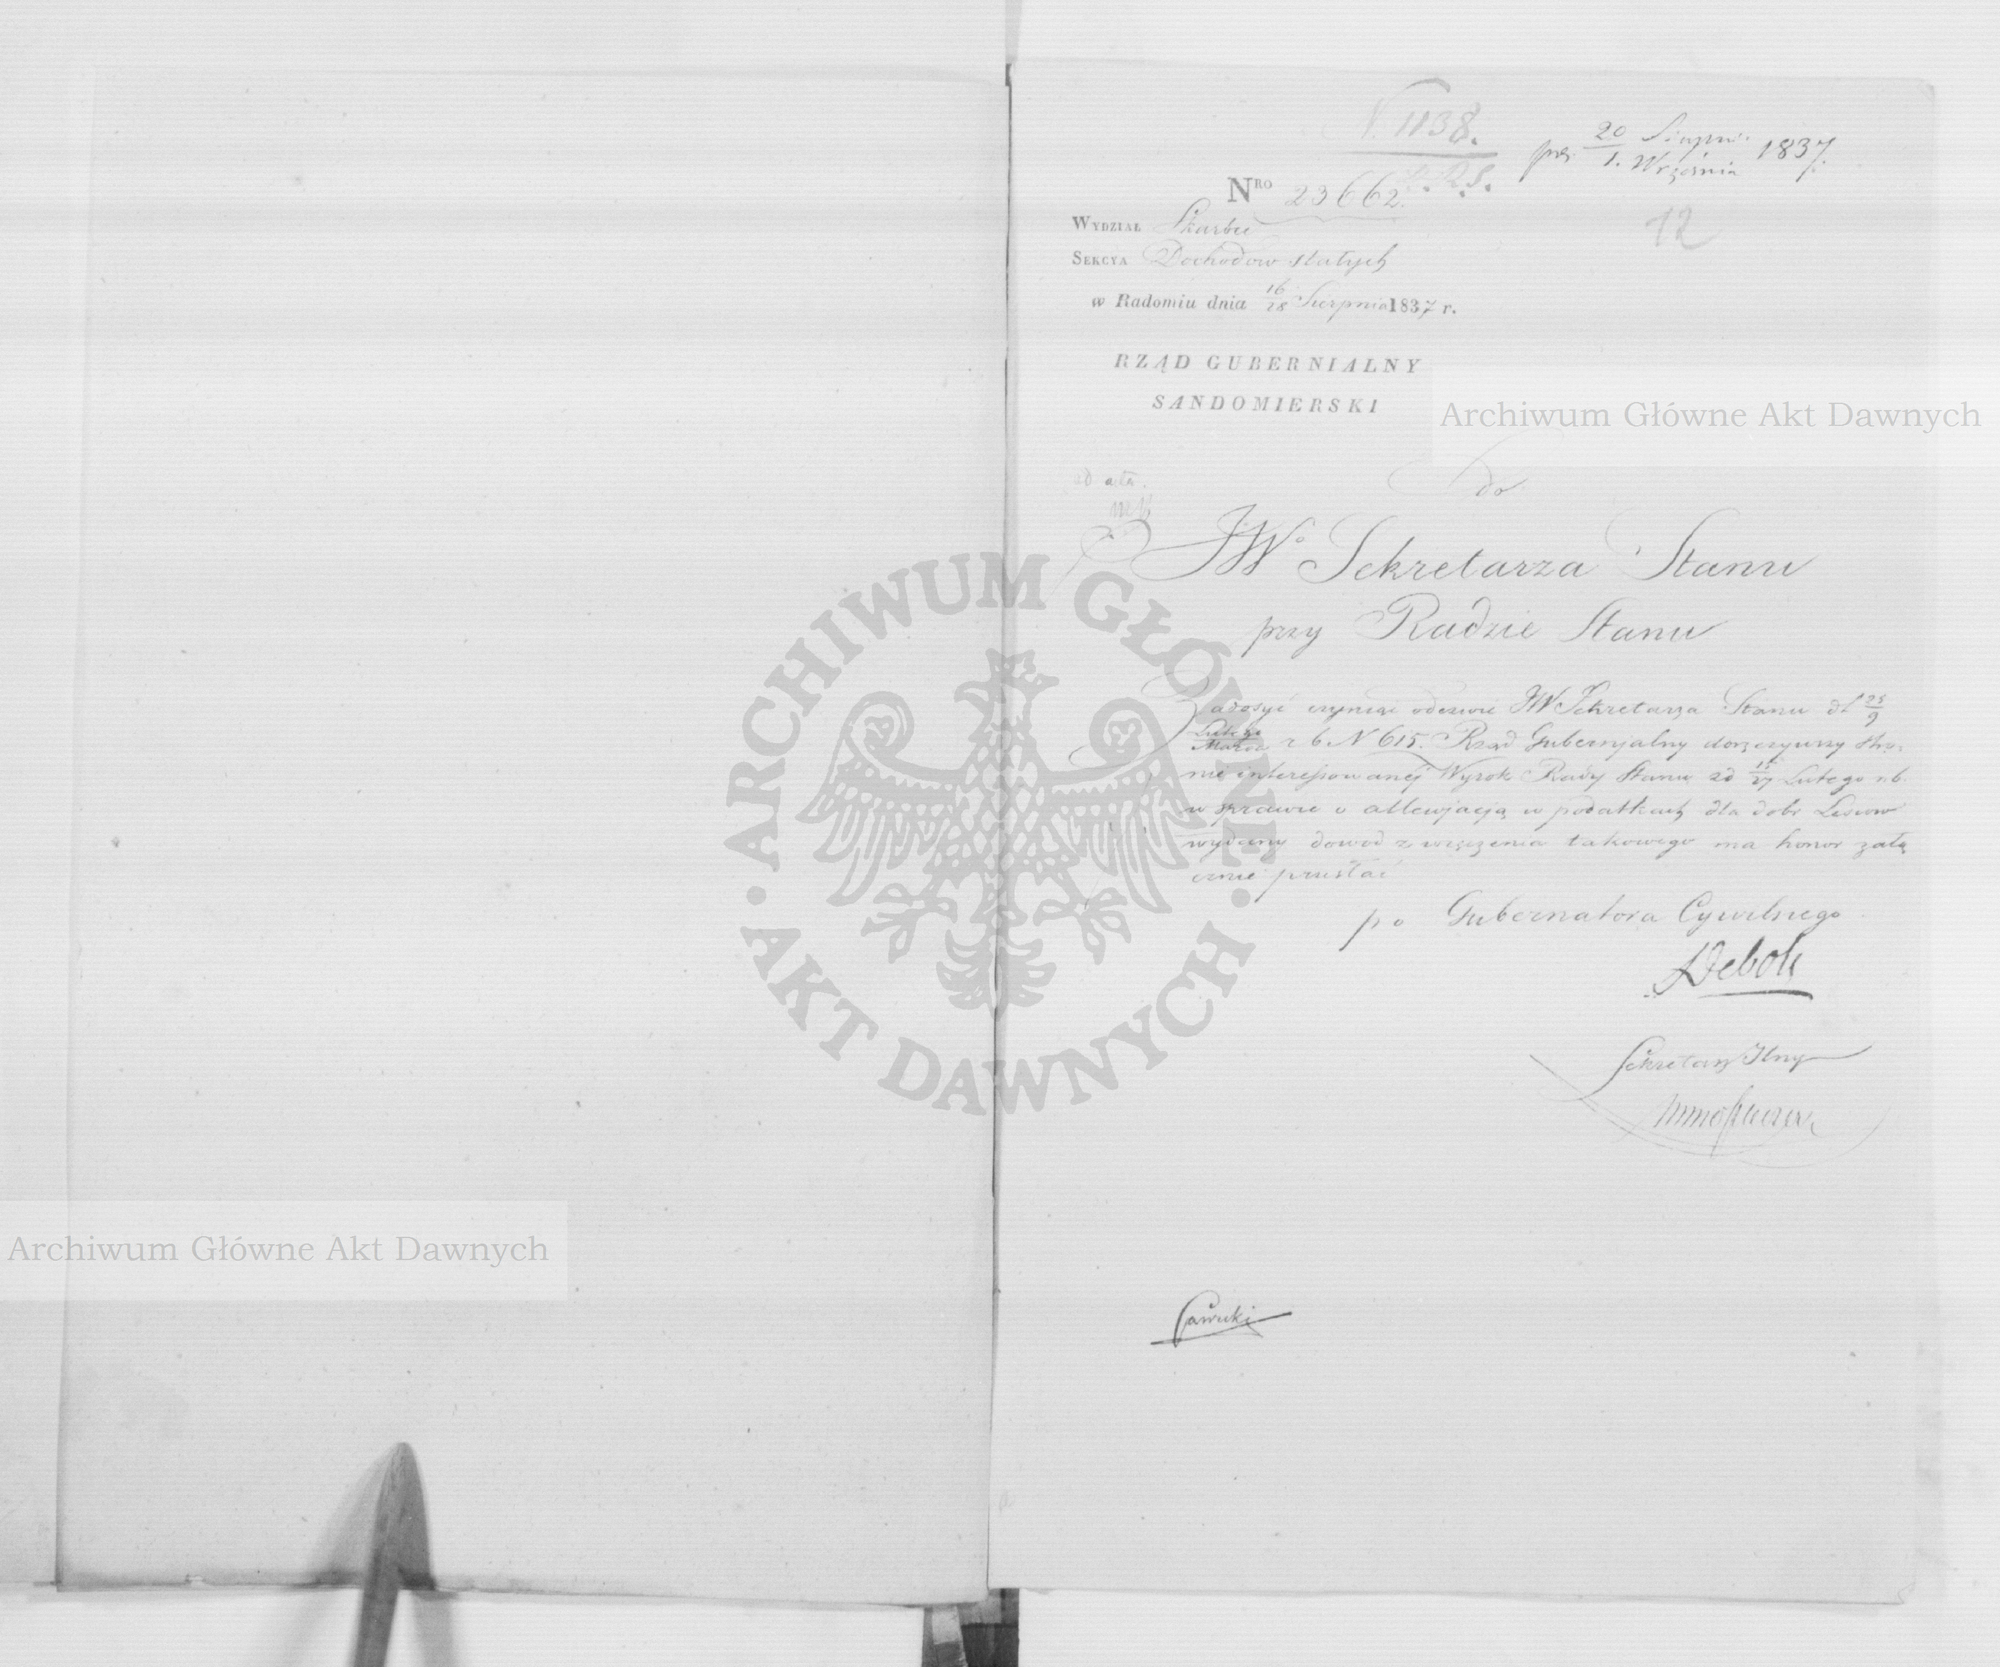 N. 1138.
R. S.
prz. 20/1. Sierpnia/Września 1837.
Nro 23662.
12
Wydział Skarbu
Sekcya Dochodów stałych
w Radomiu dnia 16/28 Sierpnia 1837 r.
RZĄD GUBERNIALNY
SANDOMIERSKI
Archiwum Główne Akt Dawnych
ad acta.
do
JWo Sekretarza Stanu
przy Radzie Stanu
Zadosyć czyniąc odezwie JW Sekretarza Stanu d 25/9
Lutego/Marca r b N 615. Rząd Gubernjalny doręczywszy Stro-
nie interessowanej Wyrok Rady Stanu z d 15/27 Lutego r.b.
w sprawie o allewjacją w podatkach dla dobr Lisow
wydany dowod z wręczenia takowego ma honor załą
cznie przesłać
po Gubernatora Cywilnego
Deboli
Sekretarz Jlny
ARCHIWUM GŁÓWNE
AKT DAWNYCH
Archiwum Główne Akt Dawnych